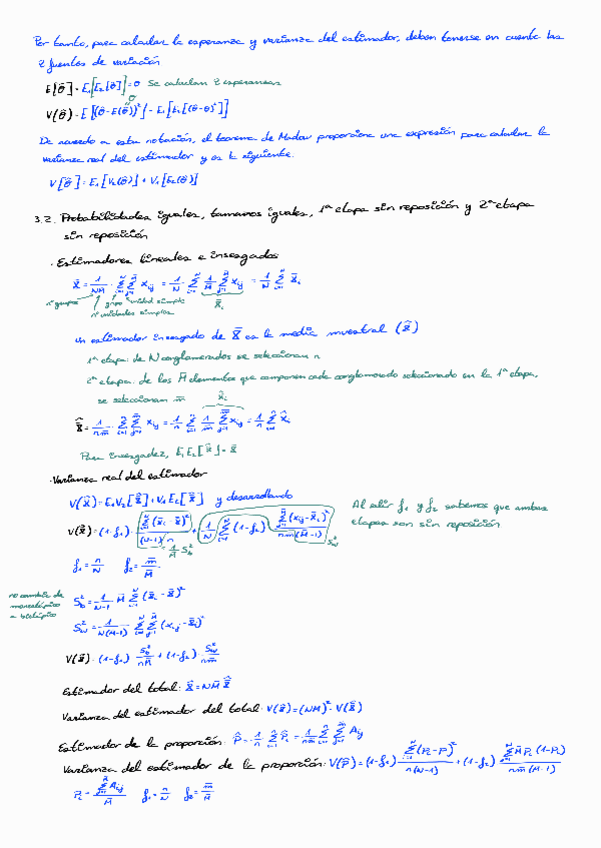 Por tanto, para calcular la esperanza y varianza del estimador, deben tenerse en cuenta las
2 fuentes de variación
E[θ̂] = E₁[E₂[θ̂]] = θ Se calculan 2 esperanzas
V(θ̂) = E[(θ̂-E(θ̂))²] = E₁[E₂[(θ̂-θ)²]]
De acuerdo a esta notación, el teorema de Madow proporciona una expresión para calcular la
varianza real del estimador y es la siguiente.
V[θ̂] = E₁[V₂(θ̂)] + V₁[E₂(θ̂)]
3.2. Probabilidades iguales, tamaños iguales, 1ª etapa sin reposición y 2ª etapa
sin reposición
· Estimadores lineales e insesgados
X̿ = 1/(NM̄) · Σ Σ Xij = 1/N · Σ 1/M̄ Σ Xij = 1/N Σ X̄i
nº grupos grupo unidad simple X̄i
nº unidades simples
Un estimador insesgado de X̿ es la media muestral (X̿̂)
1ª etapa: de N conglomerados se seleccionan n
2ª etapa: de los M̄ elementos que componen cada conglomerado seleccionado en la 1ª etapa,
se seleccionan m̄
X̿̂ = 1/(nm̄) Σ Σ Xij = 1/n Σ 1/m̄ Σ Xij = 1/n Σ X̄̂i
Para insesgadez, E₁E₂[X̿̂] = X̿
· Varianza real del estimador
V(X̿̂) = E₁V₂[X̿̂] + V₁E₂[X̿̂] y desarrollando
Al salir f₁ y f₂ sabemos que ambas
etapas son sin reposición
V(X̿̂) = (1-f₁) · Σ(X̄i - X̿)²/((N-1)n) + 1/N Σ (1-f₂) · Σ(Xij - X̄i)²/(nm̄(M̄-1))
1/M̄ Sb² Sw²
f₁ = n/N f₂ = m̄/M̄
no cambia de
monoetápico
a bietápico
Sb² = 1/(N-1) M̄ Σ (X̄i - X̿)²
Sw² = 1/(N(M̄-1)) · Σ Σ (Xij - X̄i)²
V(X̿̂) = (1-f₁) · Sb²/(nM̄) + (1-f₂) · Sw²/(nm̄)
Estimador del total: X̂ = NM̄ X̿̂
Varianza del estimador del total: V(X̂) = (NM̄)² · V(X̿̂)
Estimador de la proporción: P̂ = 1/n Σ P̂i = 1/(nm̄) Σ Σ Aij
Varianza del estimador de la proporción: V(P̂) = (1-f₁) Σ(Pi-P)²/(n(N-1)) + (1-f₂) ΣM̄Pi(1-Pi)/(nm̄N(M̄-1))
Pi = ΣAij/M̄ f₁ = n/N f₂ = m̄/M̄